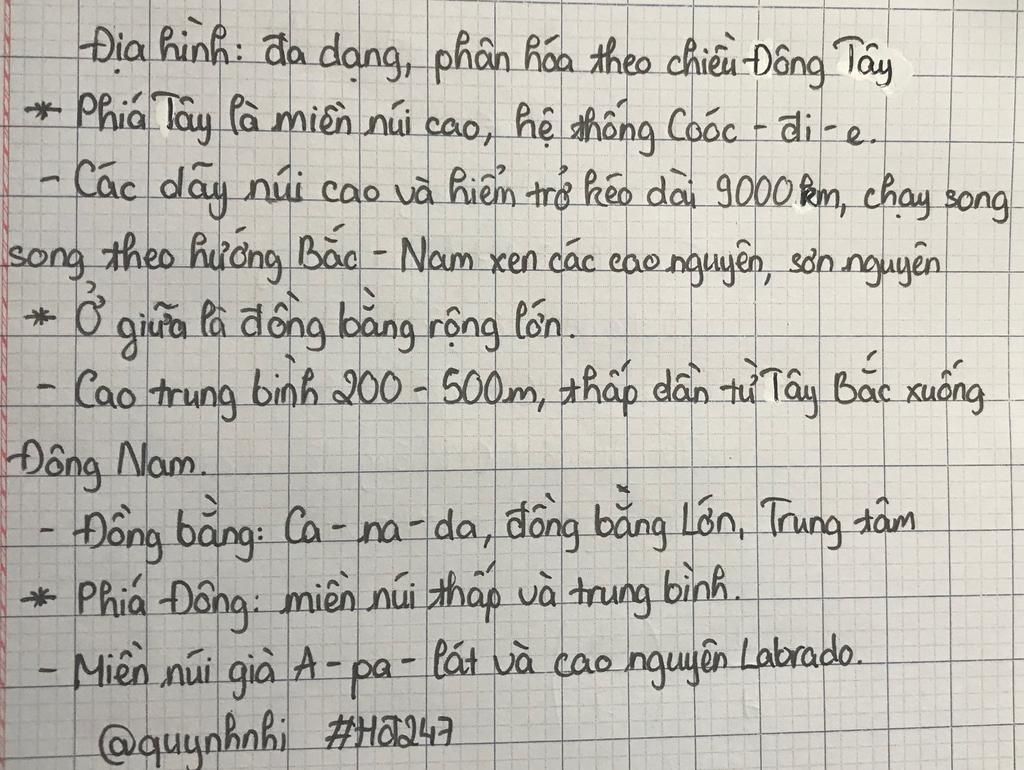 Địa hình: đa dạng, phân hóa theo chiều Đông Tây
* Phiá Tây là miền núi cao, hệ thống Coóc - đi - e.
- Các dãy núi cao và hiểm trở kéo dài 9000 km, chạy song
song theo hướng Bắc - Nam xen các cao nguyên, sơn nguyên
* Ở giữa là đồng bằng rộng lớn.
- Cao trung bình 200 - 500m, thấp dần từ Tây Bắc xuống
Đông Nam.
- Đồng bằng: Ca - na - da, đồng bằng Lớn, Trung tâm
* Phiá Đông: miền núi thấp và trung bình.
- Miền núi già A - pa - lát và cao nguyên Labrado.
@quynhnhi #HĐ247